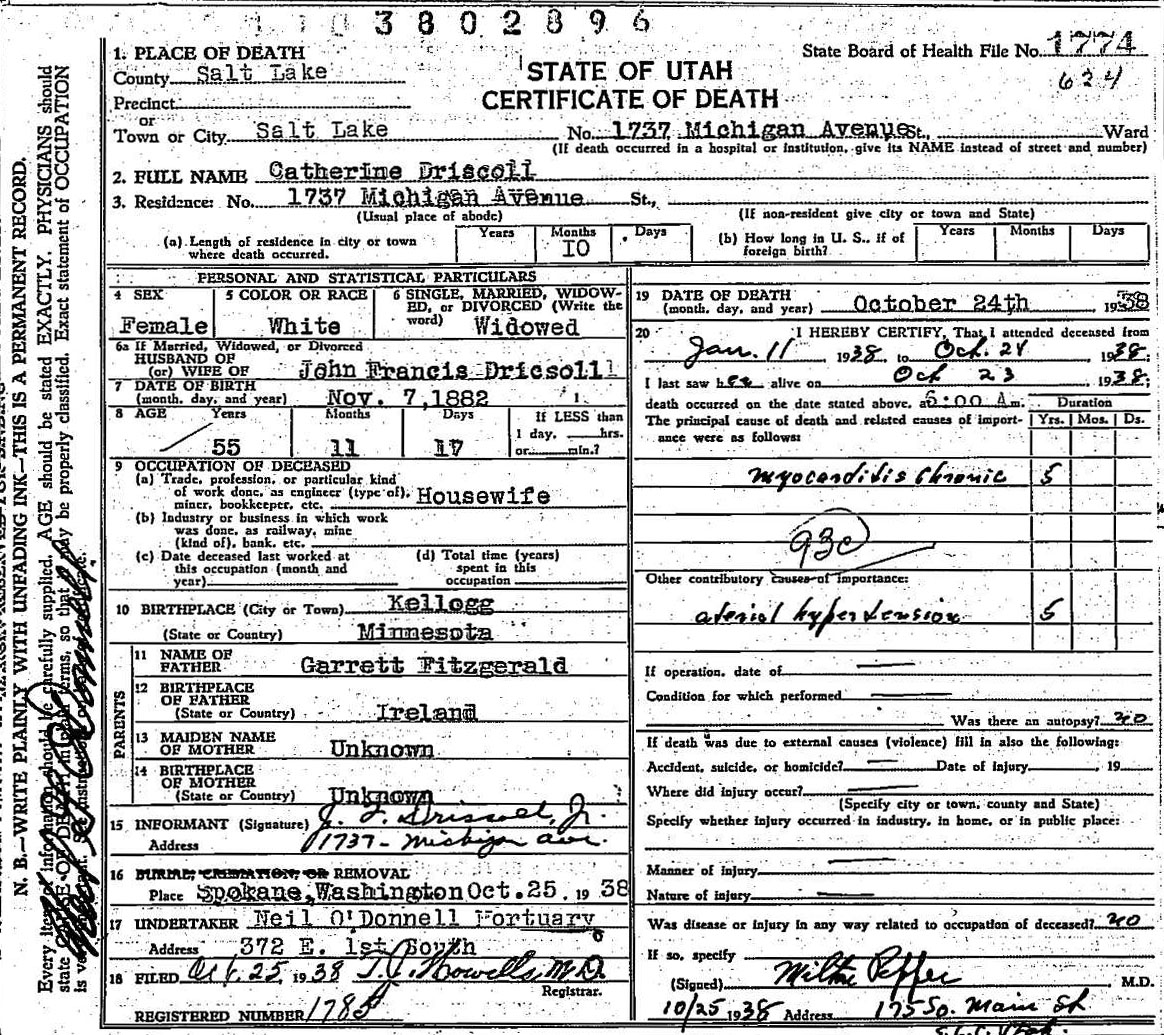 3802896
1. PLACE OF DEATH
County Salt Lake
Precinct
or
Town or City Salt Lake
State Board of Health File No. 1774
634
STATE OF UTAH
CERTIFICATE OF DEATH
No. 1737 Michigan Avenue St., Ward
(If death occurred in a hospital or institution, give its NAME instead of street and number)
2. FULL NAME Catherine Driscoll
3. Residence: No. 1737 Michigan Avenue St.,
(Usual place of abode) (If non-resident give city or town and State)
(a) Length of residence in city or town where death occurred. Years Months 10 Days
(b) How long in U. S., if of foreign birth? Years Months Days
PERSONAL AND STATISTICAL PARTICULARS
4 SEX
Female
5 COLOR OR RACE
White
6 SINGLE, MARRIED, WIDOW-
ED, or DIVORCED (Write the
word) Widowed
6a If Married, Widowed, or Divorced
HUSBAND OF
(or) WIFE OF John Francis Dricsoll
7 DATE OF BIRTH
(month, day, and year) Nov. 7, 1882
8 AGE Years Months Days If LESS than
1 day, hrs.
or min.?
55 11 17
9 OCCUPATION OF DECEASED
(a) Trade, profession, or particular kind
of work done, as engineer (type of),
miner, bookkeeper, etc. Housewife
(b) Industry or business in which work
was done, as railway, mine
(kind of), bank, etc.
(c) Date deceased last worked at
this occupation (month and
year)
(d) Total time (years)
spent in this
occupation
10 BIRTHPLACE (City or Town) Kellogg
(State or Country) Minnesota
PARENTS
11 NAME OF
FATHER Garrett Fitzgerald
12 BIRTHPLACE
OF FATHER
(State or Country) Ireland
13 MAIDEN NAME
OF MOTHER Unknown
14 BIRTHPLACE
OF MOTHER
(State or Country) Unknown
15 INFORMANT (Signature) J. F. Driscoll, Jr.
Address 1737 - Michigan Ave.
16 BURIAL, CREMATION, OR REMOVAL
Place Spokane, Washington Oct. 25, 1938
17 UNDERTAKER Neil O'Donnell Mortuary
Address 372 E. 1st South
18 FILED Oct. 25, 1938 T. J. Howells, M.D.
Registrar.
REGISTERED NUMBER 1785
19 DATE OF DEATH
(month, day, and year) October 24th 1938
20 I HEREBY CERTIFY, That I attended deceased from
Jan. 11 1938, to Oct. 24 1938;
I last saw her alive on Oct 23 1938;
death occurred on the date stated above, at 6:00 Am. Duration
The principal cause of death and related causes of import-
ance were as follows: Yrs. Mos. Ds.
myocarditis chronic 5
93c
Other contributory causes of importance:
aterial hypertension 5
If operation, date of
Condition for which performed
Was there an autopsy? no
If death was due to external causes (violence) fill in also the following:
Accident, suicide, or homicide? Date of injury 19
Where did injury occur?
(Specify city or town, county and State)
Specify whether injury occurred in industry, in home, or in public place:
Manner of injury
Nature of injury
Was disease or injury in any way related to occupation of deceased? no
If so, specify
(Signed) Milton Pepper M.D.
10/25 1938 Address 175 So. Main St
S.L.C. Utah.
N. B.—WRITE PLAINLY WITH UNFADING INK—THIS IS A PERMANENT RECORD.
Every item of information should be carefully supplied. AGE should be stated EXACTLY. PHYSICIANS should
state CAUSE OF DEATH in plain terms, so that it may be properly classified. Exact statement of OCCUPATION
is very important.